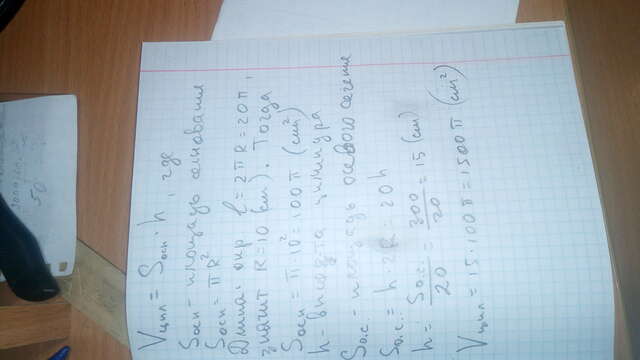 Vцил = Sосн · h, где
Sосн - площадь основания
Sосн = πR²
Длина окр ℓ = 2πR = 20π,
значит R = 10 (см). Тогда
Sосн = π·10² = 100π (см²)
h - высота цилиндра
Sо.с. - площадь осевого сечение
Sо.с. = h · 2R = 20h
h = Sо.с./20 = 300/20 = 15 (см)
Vцил = 15·100π = 1500π (см²)
50